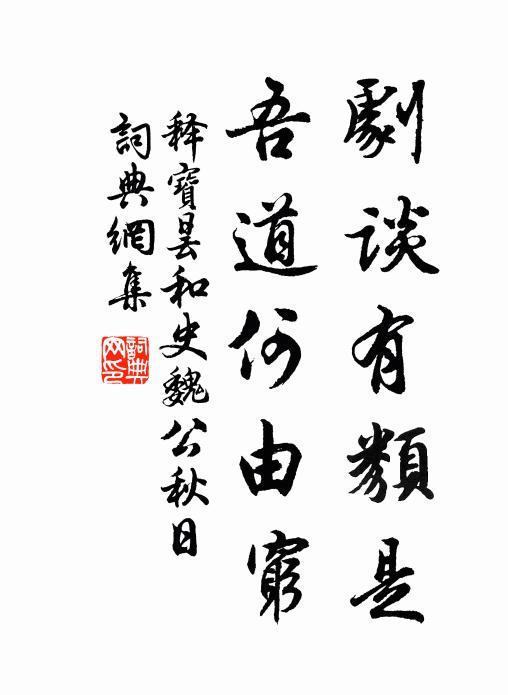 劇談有類是
吾道何由窮
释寶曇和史魏公秋日
詞典網集
詞典網印